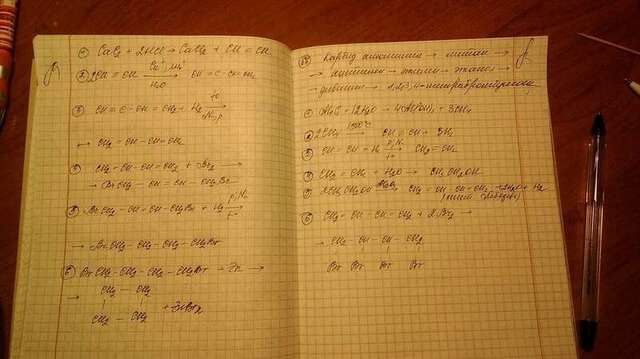 ① CaC₂ + 2HCl → CaCl₂ + CH ≡ CH
② 2CH ≡ CH → CH ≡ C - CH = CH₂
H₂O
③ CH ≡ C - CH = CH₂ + H₂ →
→ CH₂ = CH - CH = CH₂
CH₂ = CH - CH = CH₂ + Br₂ →
→ BrCH₂ - CH = CH - CH₂Br
BrCH₂ - CH = CH - CH₂Br + H₂ →
→ BrCH₂ - CH₂ - CH₂ - CH₂Br
⑥ BrCH₂ - CH₂ - CH₂ - CH₂Br + Zn →
→ CH₂ - CH₂
CH₂ - CH₂ + ZnBr₂
Карбид алюминия → метан →
→ ацетилен → этилен → этанол →
дивинил → 1,2,3,4-тетрабромбутан
① Al₄C₃ + 12H₂O → 4Al(OH)₃ + 3CH₄
② 2CH₄ 1500°C → CH ≡ CH + 3H₂
③ CH ≡ CH + H₂ → CH₂ = CH₂
④ CH₂ = CH₂ + H₂O → CH₃CH₂OH
⑤ 2CH₃CH₂OH → CH₂ = CH - CH = CH₂ + 2H₂O + H₂
⑥ CH₂ = CH - CH = CH₂ + 2Br₂ →
→ CH₂ - CH - CH - CH₂
Br Br Br Br